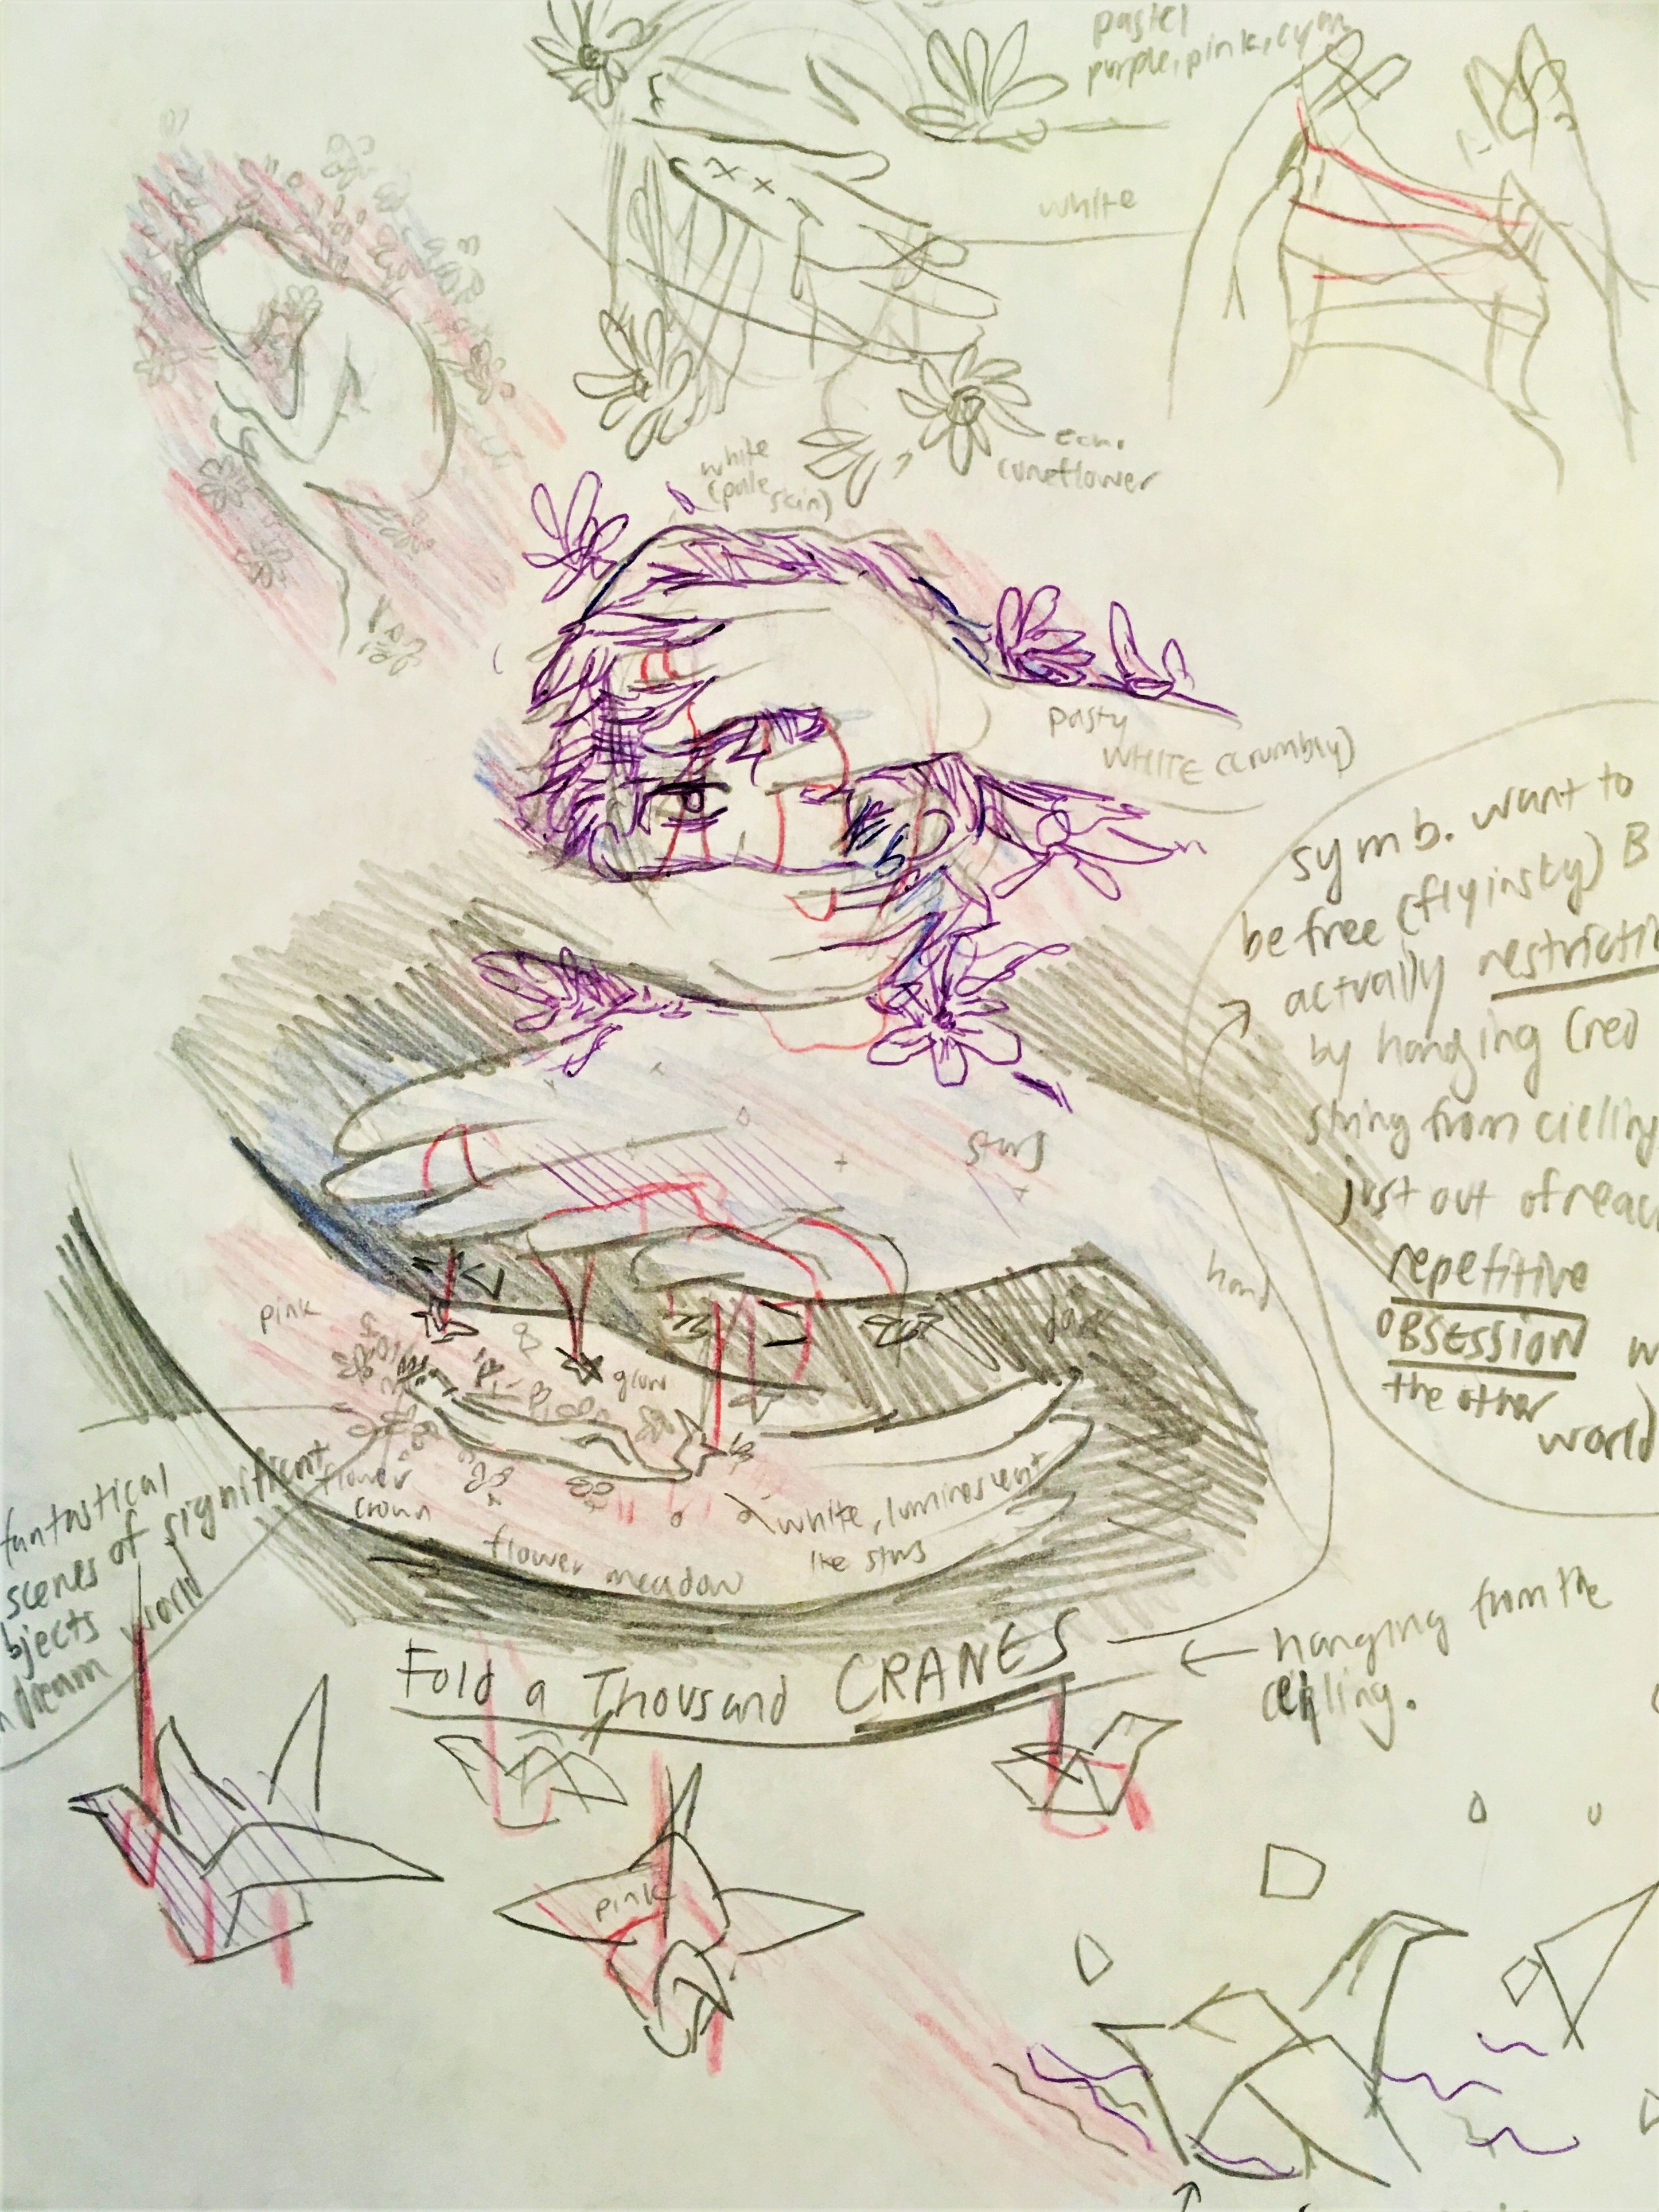 pastel
purple, pink, cyan
white
ech.
coneflower
white
(pale
skin)
pasty
WHITE (crumbly)
symb. want to
be free (fly in sky) B
actually restricti
by hanging (red
string from cieling,
just out of reac
repetitive
OBSESSION w
the other
world)
stars
hand
dark
pink
glow
flower
crown
flower meadow
white, luminescent
like stars
fantastical
scenes of significant
bjects
n dream world
Fold a Thousand CRANES
hanging from the
ceiling.
pink